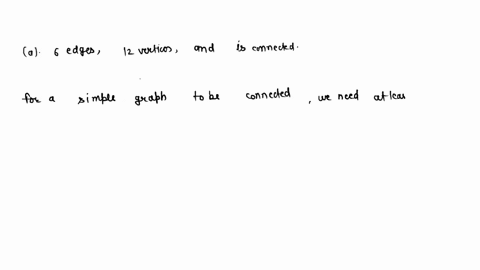 (a). 6 edges, 12 vertices, and is connected.
for a simple graph to be connected, we need atleas